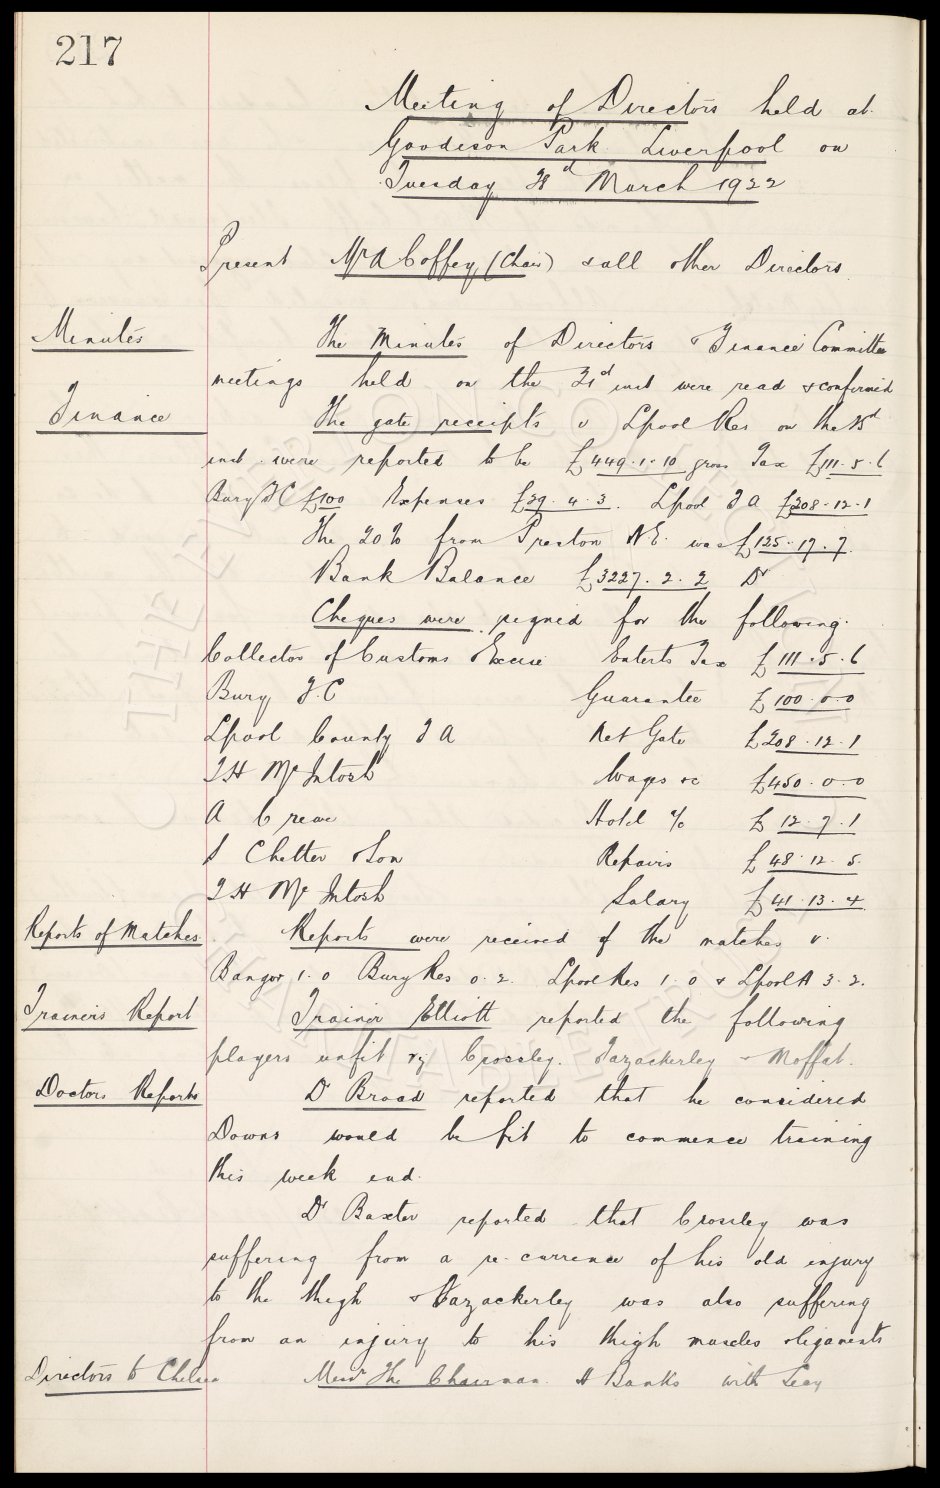 217
Meeting of Directors held at
Goodison Park Liverpool on
Tuesday 28th March 1922
Present Mr A Coffey, (Chair) & all other Directors.
Minutes
The Minutes of Directors & Finance Committee
meetings held on the 21st inst were read & confirmed
Finance
The gate receipts v Lpool Res on the
inst. were reported to be £449.1.10 gross Tax £111.5.6
Bury F C £100 Expenses £29.4.3. Lpool F A £208.12.1
The 20% from Preston N E. was £125.17.7.
Bank Balance £3227.2.2 Dr
Cheques were signed for the following.
Collector of Customs & Excise Enterts Tax £111.5.6
Bury F.C Guarantee £100.0.0
Lpool County F A Net Gate £208.12.1
T H McIntosh Wages &c £450.0.0
A Crewe Hotel a/c £12.7.1
S Chetter & Son Repairs £48.12.5.
T H McIntosh Salary £41.13.4
Reports of Matches
Reports were received of the matches v.
Bangor 1.0 Bury Res 0.2. Lpool Res 1.0 & Lpool A 3.2.
Trainers Report
Trainer Elliott reported the following
players unfit viz Crossley. Fazackerley & Moffat.
Doctors Reports
Dr Broad reported that he considered
Downs would be fit to commence training
this week end.
Dr Baxter reported that Crossley was
suffering from a re-currence of his old injury
to the thigh & Fazackerley was also suffering
from an injury to his thigh muscles & ligaments
Directors to Chelsea
Messrs The Chairman. A Banks with Secy